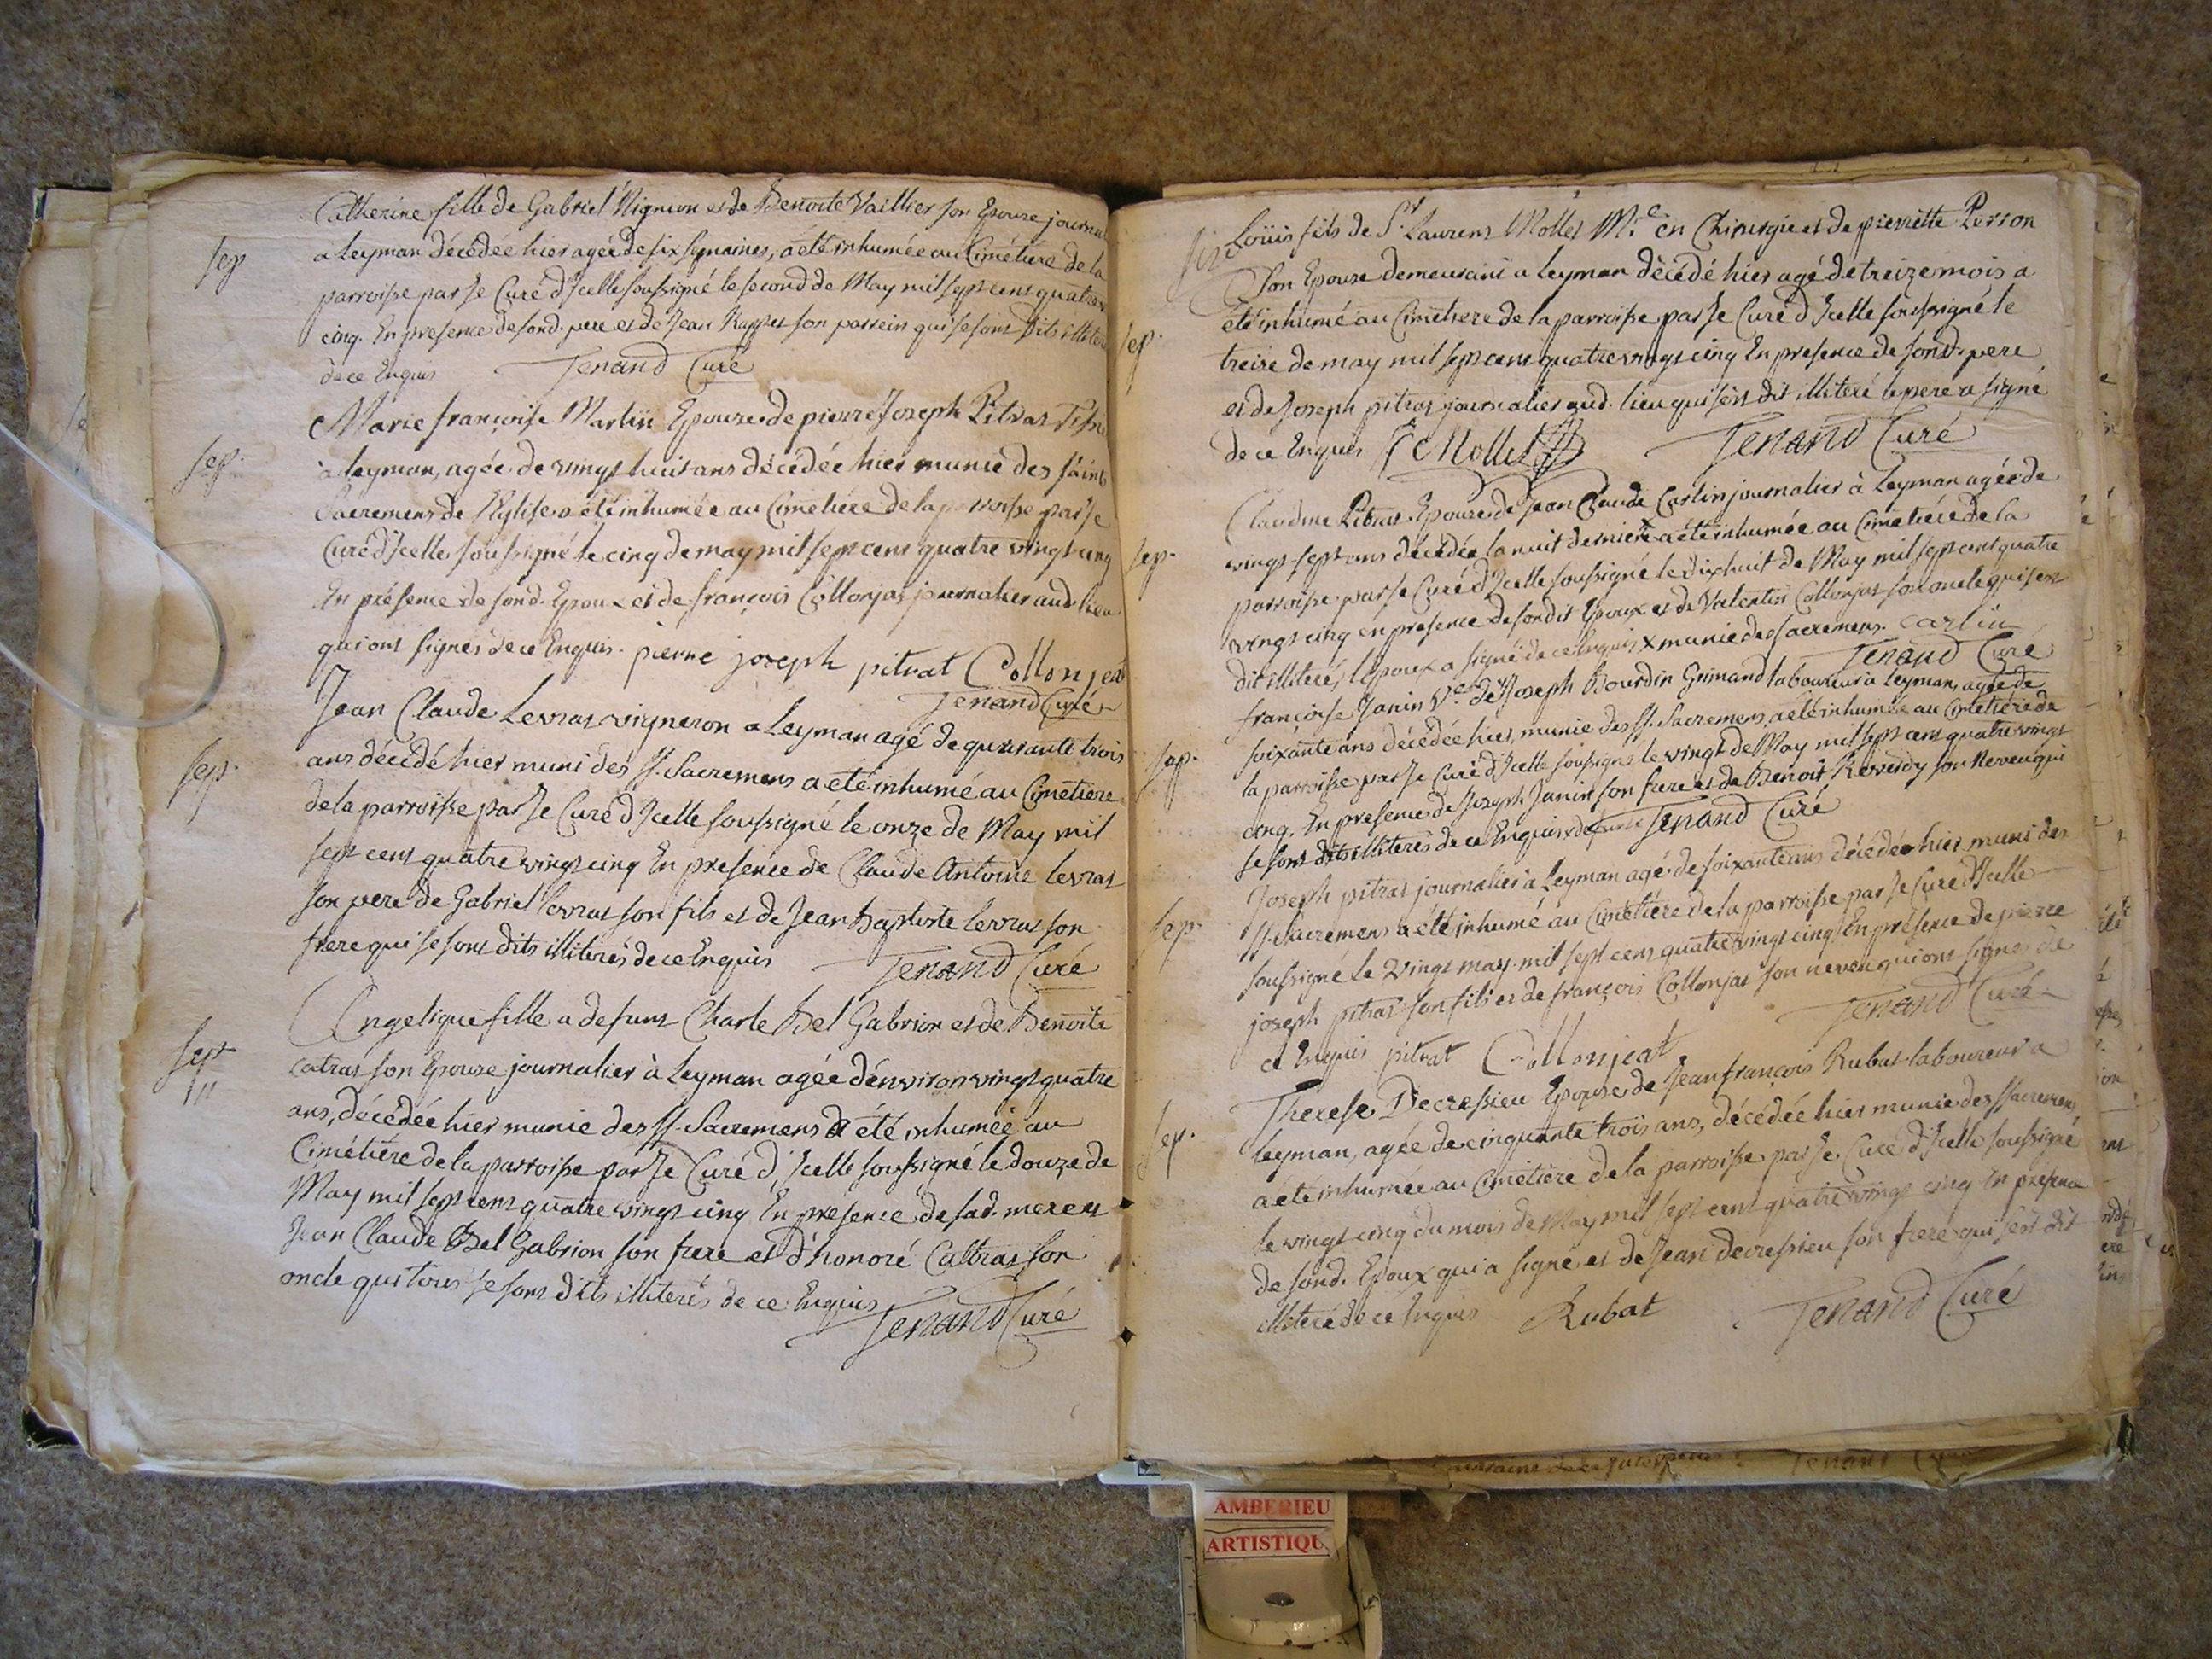 Catherine fille de Gabriel Vignion et de Benoite Vaillier son Epouse journal
sep
a Leyman décédée hier agée de six semaines, a eté inhumée au Cimétiere de la
parroisse par Je Curé d'Jcelle soussigné le second de May mil sept cent quatre v
cinq. En presence de sond. pere et de Jean son parrein qui se sont dits illiter
de ce Enquis Tenand Curé
Marie françoise Martin Epouse de pierre Joseph Pitrat
sep.
à leyman, agée de vingt huit ans décédée hier munie des saints
Sacremens de l'Eglise a été inhumée au Cimetiére de la parroisse par Je
Curé d'Jcelle soussigné le cinq de may mil sept cent quatre vingt cinq
En présence de sond. Epoux et de françois Collonjat journalier aud. lieu
qui ont signés de ce Enquis. pierre joseph pitrat Collonjat
Tenand Curé
Jean Claude Levrat vigneron a Leyman agé de quarante trois
sep.
ans décédé hier muni des SS. Sacremens a été inhumé au Cimetiere
de la parroisse par Je Curé d'Jcelle soussigné le onze de May mil
sept cent quatre vingt cinq En presence de Claude Antoine levrat
son pere de Gabriel levrat son fils et de Jean Baptiste levrat son
frere qui se sont dits illiterés de ce Enquis Tenand Curé
Angelique fille a defunt Charle Bel Gabrion et de Benoite
sep
catras son Epouse journalier à Leyman agée d'environ vingt quatre
ans, décédée hier munie des SS. Sacremens a été inhumée au
Cimétiére de la parroisse par Je Curé d'Jcelle soussigné le douze de
May mil sept cent quatre vingt cinq En présence de sad. mere et
Jean Claude Bel Gabrion son frere et d'honoré Catras son
oncle qui tous se sont dits illiterés de ce Enquis
Tenand Curé
Loüis fils de Sr. Laurent Mollet Me. en Chirurgie et de pierrette Perron
son Epouse demeurant a leyman décédé hier agé de treize mois a
été inhumé au Cimetiere de la parroisse par Je Curé d'Jcelle soussigné le
sep.
treize de may mil sept cent quatre vingt cinq En presence de sond. pere
et de Joseph pitrat journalier aud. lieu qui s'est dit illiteré le pere a signé
de ce Enquis Mollet Tenand Curé
Claudine Pitrat Epouse de Jean Claude Carlin journalier à Leyman agée de
sep.
vingt sept ans décédée la nuit derniere x a été inhumée au Cimetiére de la
parroisse par Je Curé d'Jcelle soussigné le dixhuit de May mil sept cent quatre
vingt cinq en presence de sondit Epoux et de Valentin Collonjat son oncle qui s'est
dit illiteré, l'epoux a signé de ce Enquis x munie des sacremens. carlin
Tenand Curé
françoise Janin Ve. de Joseph Bourdin Grimand laboureur a Leyman, agée de
sep.
soixante ans décédée hier, munie des SS. Sacremens, a eté inhumée au Cimetiére de
la parroisse par Je Curé d'Jcelle soussigné le vingt de May mil sept cent quatre vingt
cinq. En presence de Joseph Janin son frere et de Benoit Reverdy son Neveu qui
se sont dits illiterés de ce Enquis Tenand Curé
Joseph pitrat journalier a Leyman agé de soixante ans décédé hier muni des
sep.
SS. Sacremens a été inhumé au Cimetiére de la parroisse par Je Curé d'Jcelle
soussigné le vingt may mil sept cent quatre vingt cinq En présence de pierre
joseph pitrat son fils et de françois Collonjat son neveu qui ont signés de
ce Enquis pitrat Collonjeat Tenand Curé
Therese Decressieu Epouse de Jean françois Rubat laboureur a
sep.
leyman, agée de cinquante trois ans, décédée hier munie des Sacremens
a été inhumée au Cimetiere de la parroisse par Je Curé d'Jcelle soussigné
le vingt cinq du mois de May mil sept cent quatre vingt cinq En presence
de sond. Epoux qui a signé et de Jean decressieu son frere qui s'est dit
illiteré de ce Enquis Rubat Tenand Curé
AMBERIEU
ARTISTIQU